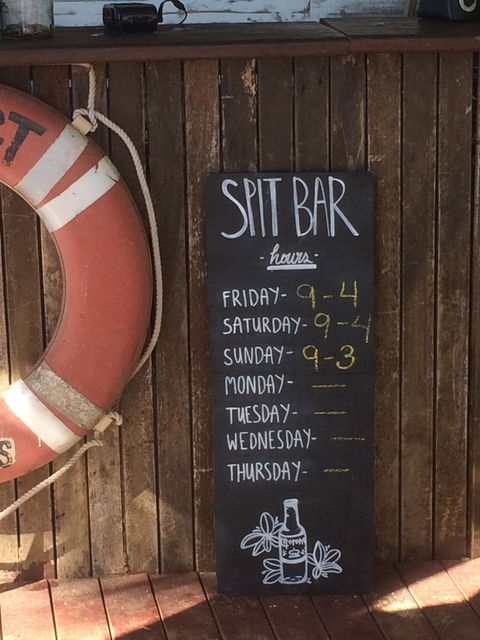 CT
SPIT BAR
- hours -
FRIDAY- 9 - 4
SATURDAY- 9 - 4
SUNDAY- 9 - 3
MONDAY- —
TUESDAY- —
WEDNESDAY- —
THURSDAY- —
Corona
S